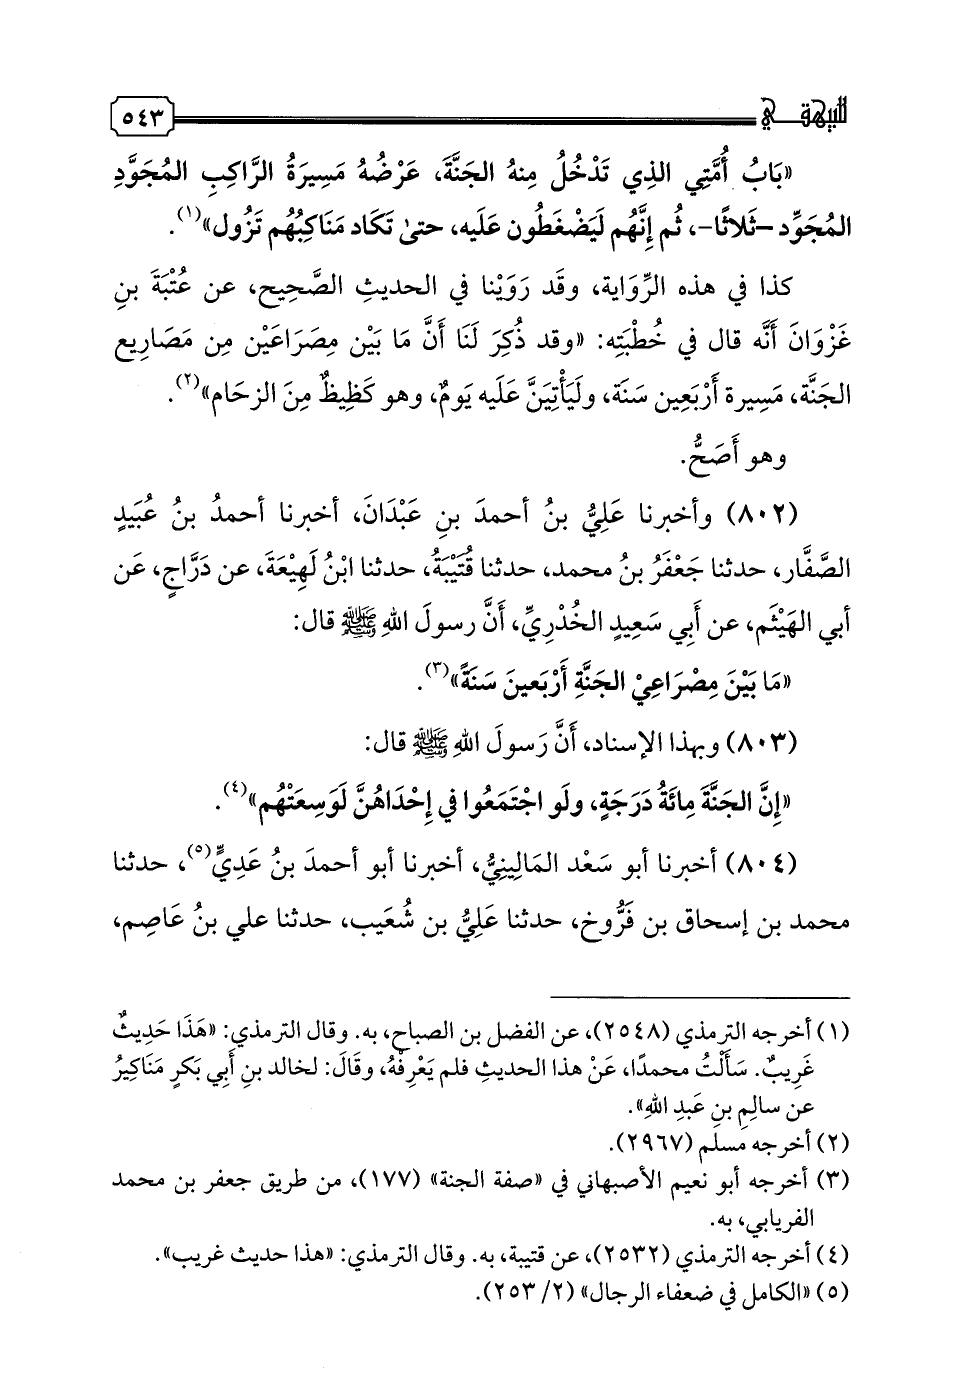 للبيهقي
٥٤٣
«بَابُ أُمَّتِي الذِي تَدْخُلُ مِنهُ الجَنَّةَ، عَرْضُهُ مَسِيرَةُ الرَّاكِبِ المُجَوَّدِ
المُجَوِّد -ثَلاثًا-، ثُم إِنَّهُم لَيَضْغَطُون عَلَيه، حتىٰ تَكَاد مَنَاكِبُهُم تَزُول»(١).
كذا في هذه الرِّوَاية، وقَد رَوَيْنا في الحديثِ الصَّحِيح، عن عُتْبَةَ بنِ
غَزْوَانَ أَنَّه قال في خُطْبَتِه: «وقد ذُكِرَ لَنَا أَنَّ مَا بَيْن مِصْرَاعَيْن مِن مَصَارِيع
الجَنَّة، مَسِيرة أَرْبَعِين سَنَة، ولَيَأْتِيَنَّ عَلَيه يَومٌ، وهو كَظِيظٌ مِنَ الزحَام»(٢).
وهو أَصَحُّ.
(٨٠٢) وأخبرنا عَلِيُّ بنُ أحمدَ بنِ عَبْدَانَ، أخبرنا أحمدُ بنُ عُبَيدٍ
الصَّفَّار، حدثنا جَعْفَرُ بنُ محمد، حدثنا قُتَيْبَةُ، حدثنا ابْنُ لَهِيْعَةَ، عن دَرَّاجٍ، عَن
أبي الهَيْثَم، عن أَبِي سَعِيدٍ الخُدْرِيِّ، أَنَّ رسولَ اللهِ ﷺ قال:
«مَا بَيْنَ مِصْرَاعِيْ الجَنَّةِ أَرْبَعينَ سَنَةً»(٣).
(٨٠٣) وبهذا الإسناد، أَنَّ رَسولَ اللهِ ﷺ قال:
«إِنَّ الجَنَّةَ مِائَةُ دَرَجَةٍ، ولَو اجْتَمَعُوا في إِحْدَاهُنَّ لَوَسِعَتْهُم»(٤).
(٨٠٤) أخبرنا أبو سَعْد المَالِينِيُّ، أخبرنا أبو أحمدَ بنُ عَدِيٍّ(٥)، حدثنا
محمد بن إسحاق بن فَرُّوخ، حدثنا عَلِيُّ بن شُعَيب، حدثنا علي بنُ عَاصِم،
(١) أخرجه الترمذي (٢٥٤٨)، عن الفضل بن الصباح، به. وقال الترمذي: «هَذَا حَدِيثٌ
غَرِيبٌ. سَأَلْتُ محمدًا، عَنْ هذا الحديثِ فلم يَعْرِفْهُ، وقَالَ: لخالد بنِ أَبِي بَكرٍ مَنَاكِيرُ
عن سالِمِ بنِ عَبدِ اللهِ».
(٢) أخرجه مسلم (٢٩٦٧).
(٣) أخرجه أبو نعيم الأصبهاني في «صفة الجنة» (١٧٧)، من طريق جعفر بن محمد
الفريابي، به.
(٤) أخرجه الترمذي (٢٥٣٢)، عن قتيبة، به. وقال الترمذي: «هذا حديث غريب».
(٥) «الكامل في ضعفاء الرجال» (٢/ ٢٥٣).